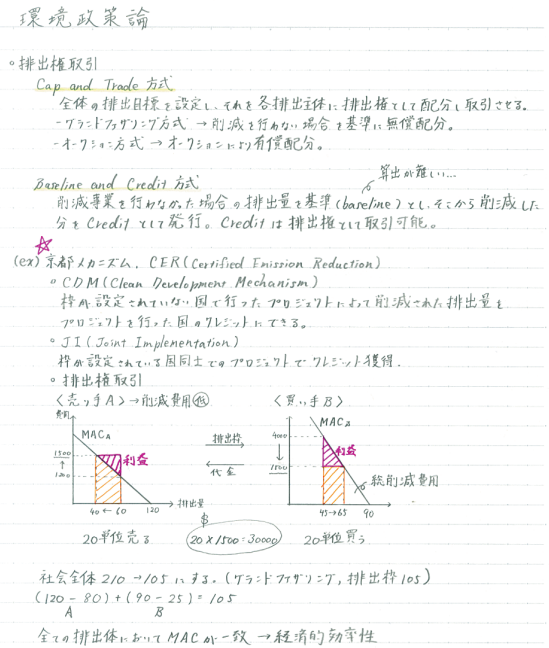 環境政策論
○排出権取引
Cap and Trade 方式
全体の排出目標を設定し、それを各排出主体に排出権として配分し取引させる。
-グランドファザリング方式 → 削減を行わない場合を基準に無償配分。
-オークション方式 → オークションにより有償配分。
算出が難しい…
Baseline and Credit 方式
削減事業を行わなかった場合の排出量を基準(baseline)とし、そこから削減した
分をCreditとして発行。Creditは排出権として取引可能。
☆
(ex) 京都メカニズム. CER(Certified Emission Reduction)
○CDM(Clean Development Mechanism)
枠が設定されていない国で行ったプロジェクトによって削減された排出量を
プロジェクトを行った国のクレジットにできる。
○JI(Joint Implementation)
枠が設定されている国同士でのプロジェクトでクレジット獲得.
○排出権取引
〈売り手A〉→削減費用低 〈買い手B〉
費用
MACA
1500
↑
1200
利益
40 ← 60
120
排出量
排出枠
代金
MACB
4000
↓
1500
利益
総削減費用
45→65
90
$
20単位売る
20×1500=30000
20単位買う
社会全体 210→105 にする。(グランドファザリング, 排出枠105)
(120-80)+(90-25)=105
A B
全ての排出体においてMACが一致 → 経済的効率性